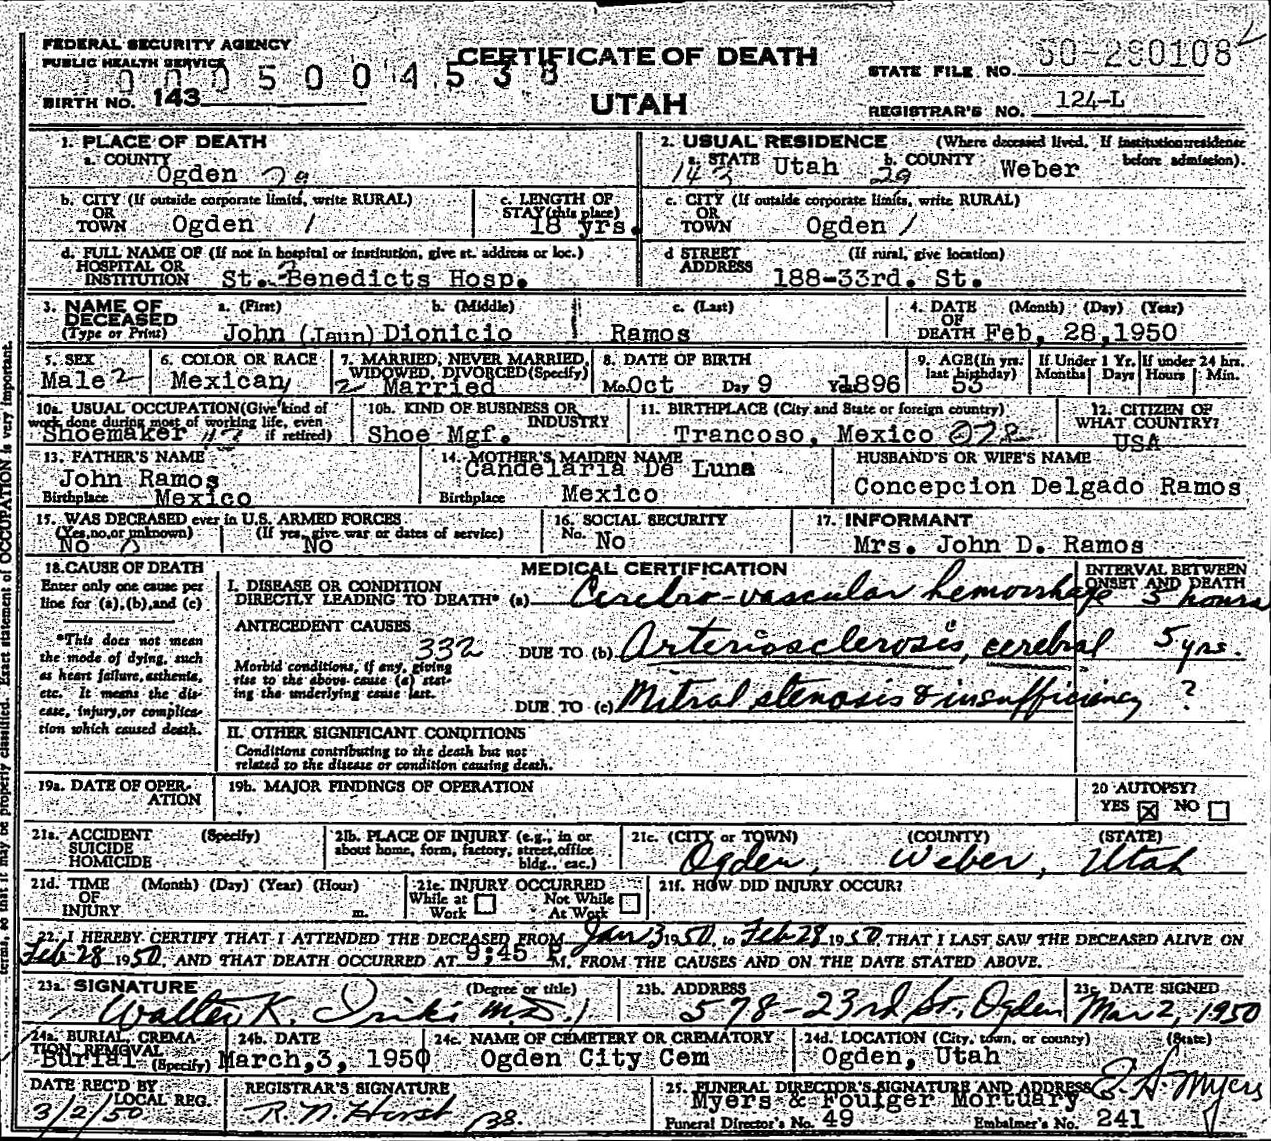 FEDERAL SECURITY AGENCY
PUBLIC HEALTH SERVICE
0 0 0 5 0 0 4 5 3 8
BIRTH NO. 143
CERTIFICATE OF DEATH
UTAH
STATE FILE NO. 50-290108
REGISTRAR'S NO. 124-L
1. PLACE OF DEATH
a. COUNTY
Ogden 29
2. USUAL RESIDENCE (Where deceased lived. If institution:residence before admission).
a. STATE Utah b. COUNTY Weber
143 29
b. CITY (If outside corporate limits, write RURAL)
OR
TOWN Ogden 1
c. LENGTH OF
STAY (this place)
18 yrs.
c. CITY (If outside corporate limits, write RURAL)
OR
TOWN Ogden 1
d. FULL NAME OF (If not in hospital or institution, give st. address or loc.)
HOSPITAL OR
INSTITUTION St. Benedicts Hosp.
d STREET (If rural, give location)
ADDRESS 188-33rd. St.
3. NAME OF DECEASED (Type or Print)
a. (First) b. (Middle) c. (Last)
John (Jaun) Dionicio Ramos
4. DATE (Month) (Day) (Year)
OF
DEATH Feb, 28,1950
5. SEX
Male 2
6. COLOR OR RACE
Mexican
7. MARRIED, NEVER MARRIED,
WIDOWED, DIVORCED(Specify)
2 Married
8. DATE OF BIRTH
Mo.Oct Day 9 Yr1896
9. AGE(In yrs.
last birthday)
53
If Under 1 Yr.
Months Days
If under 24 hrs.
Hours Min.
10a. USUAL OCCUPATION(Give kind of
work done during most of working life, even
if retired)
Shoemaker
10b. KIND OF BUSINESS OR
INDUSTRY
Shoe Mgf.
11. BIRTHPLACE (City and State or foreign country)
Trancoso, Mexico
12. CITIZEN OF
WHAT COUNTRY?
USA
13. FATHER'S NAME
John Ramos
Birthplace Mexico
14. MOTHER'S MAIDEN NAME
Candelaria De Luna
Birthplace Mexico
HUSBAND'S OR WIFE'S NAME
Concepcion Delgado Ramos
15. WAS DECEASED ever in U.S. ARMED FORCES
(Yes,no,or unknown) (If yes, give war or dates of service)
No 0 No
16. SOCIAL SECURITY
No. No
17. INFORMANT
Mrs. John D. Ramos
18.CAUSE OF DEATH
Enter only one cause per
line for (a),(b),and (c)
*This does not mean
the mode of dying, such
as heart failure,asthenia,
etc. It means the dis-
ease, injury,or complica-
tion which caused death.
MEDICAL CERTIFICATION
INTERVAL BETWEEN
ONSET AND DEATH
I. DISEASE OR CONDITION
DIRECTLY LEADING TO DEATH* (a) Cerebro-vascular hemorrhage 5 hours
ANTECEDENT CAUSES
332 DUE TO (b) Arteriosclerosis, cerebral 5 yrs.
Morbid conditions, if any, giving
rise to the above cause (a) stat-
ing the underlying cause last.
DUE TO (c) Mitral stenosis & insufficiency ?
II. OTHER SIGNIFICANT CONDITIONS
Conditions contributing to the death but not
related to the disease or condition causing death.
19a. DATE OF OPER-
ATION
19b. MAJOR FINDINGS OF OPERATION
20 AUTOPSY?
YES ☒ NO ☐
21a. ACCIDENT (Specify)
SUICIDE
HOMICIDE
21b. PLACE OF INJURY (e.g., in or
about home, form, factory, street,office
bldg., eac.)
21c. (CITY or TOWN) (COUNTY) (STATE)
Ogden, Weber, Utah
21d. TIME (Month) (Day) (Year) (Hour)
OF
INJURY m.
21e. INJURY OCCURRED
While at Work ☐ Not While At Work ☐
21f. HOW DID INJURY OCCUR?
22. I HEREBY CERTIFY THAT I ATTENDED THE DECEASED FROM Jan 3 1950, to Feb 28 1950 THAT I LAST SAW THE DECEASED ALIVE ON
Feb-28 1950, AND THAT DEATH OCCURRED AT 9:45 P.M. FROM THE CAUSES AND ON THE DATE STATED ABOVE.
23a. SIGNATURE (Degree or title)
Walter K. M.D.
23b. ADDRESS
578-23rd St. Ogden
23c. DATE SIGNED
Mar 2, 1950
24a. BURIAL, CREMA-
TION REMOVAL
Burial (Specify)
24b. DATE
March,3, 1950
24c. NAME OF CEMETERY OR CREMATORY
Ogden City Cem
24d. LOCATION (City, town, or county) (State)
Ogden, Utah
DATE REC'D BY
LOCAL REG.
3/2/50
REGISTRAR'S SIGNATURE
R. N. Hirst
25. FUNERAL DIRECTOR'S SIGNATURE AND ADDRESS
Myers & Foulger Mortuary
Myers
Funeral Director's No. 49 Embalmer's No. 241
terms, so that it may be properly classified. Exact statement of OCCUPATION is very important.